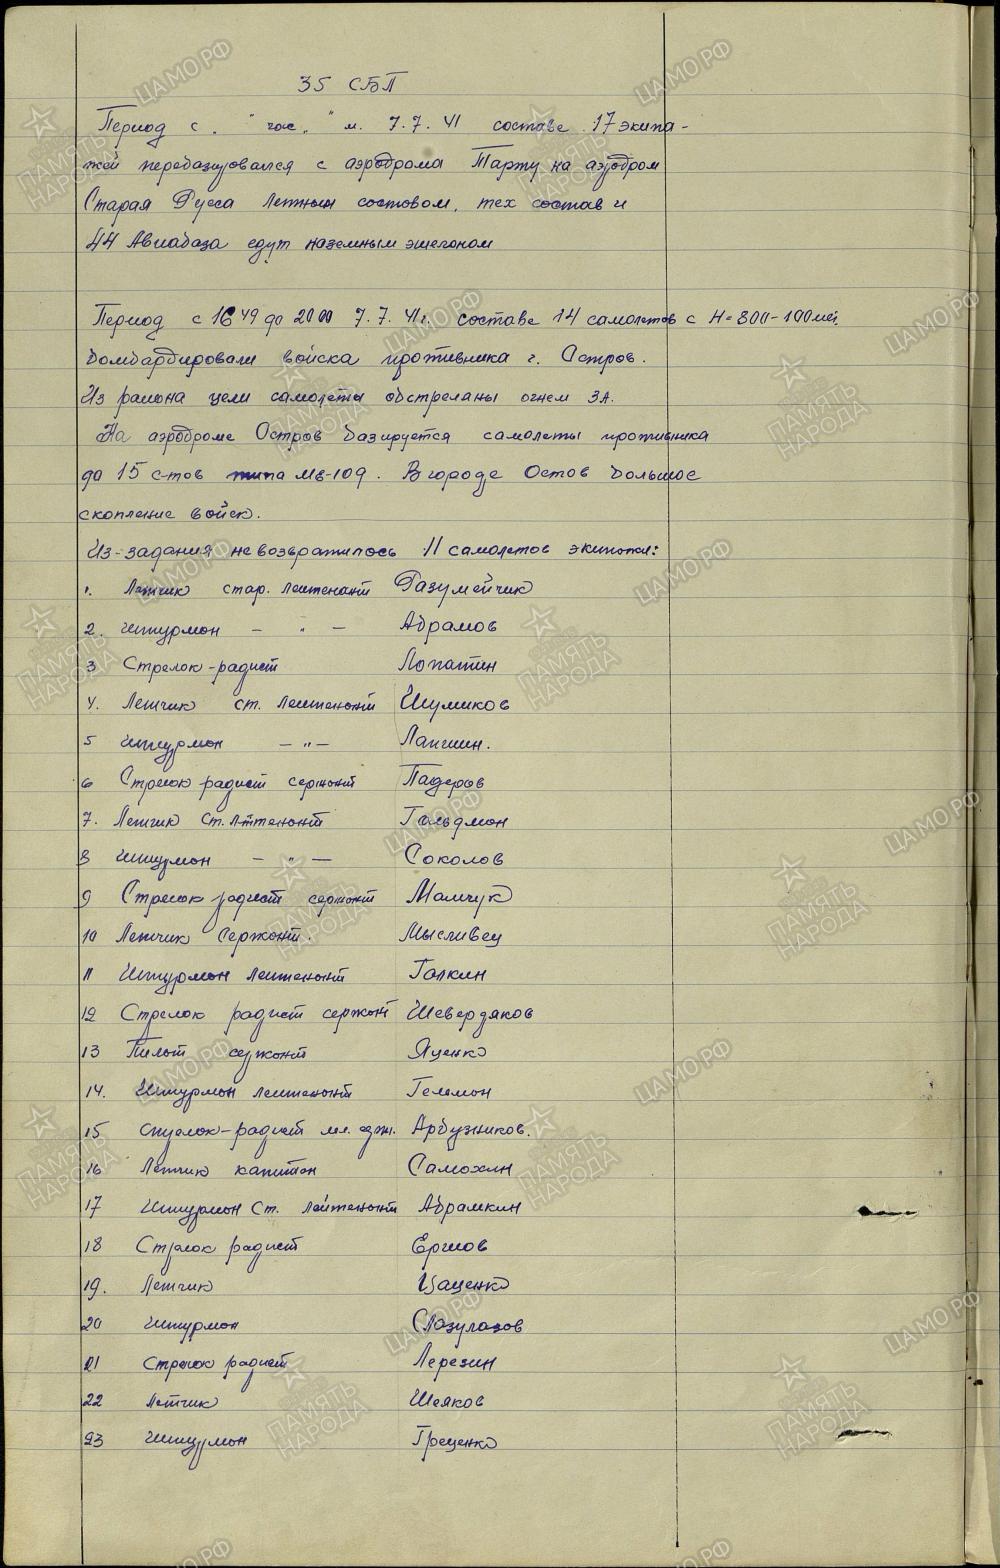 35 СБП
Период с „ " час „ " м. 7.7.41 составе 17 экипа-
жей перебазировался с аэродрома Тарту на аэродром
Старая Русса летным составом, тех состав и
44 Авиабаза едут наземным эшегоном
Период с 16 49 до 20 00 7.7.41г. составе 14 самолетов с H=800-1000 мет.
бомбардировали войска противника г. Остров.
Из района цели самолеты обстреляны огнем ЗА.
На аэродроме Остров базируется самолеты противника
до 15 с-тов типа Ме-109. В городе Остов большое
скопление войск.
Из-задания не возвратилось 11 самолетов экипажи:
1. Летчик стар. лейтенант Разумейчик
2. Штурман — " — Абрамов
3 Стрелок-радист Лопатин
4. Летчик ст. лейтенант Шумиков
5 Штурман — " — Лапшин.
6 Стрелок радист сержант Падеров
7. Летчик Ст. лттенант Гольдман
8 Штурман — " — Соколов
9 Стрелок радист сержант Мамчук
10 Летчик Сержант. Мысливец
11 Штурман лейтенант Галкин
12 Стрелок радист сержант Шевердяков
13 Пилот сержант Яценко
14. Штурман лейтенант Гельман
15 стрелок-радист мл. срж. Арбузников.
16 Летчик капитан Самохин
17 Штурман Ст. лейтенант Абрамкин
18 Стрелок радист Ершов
19. Летчик Цаценко
20 Штурман
21 Стрелок радист Лерезин
22 Летчик Шеяков
23 Штурман Греценко
ЦАМО РФ
ПАМЯТЬ НАРОДА